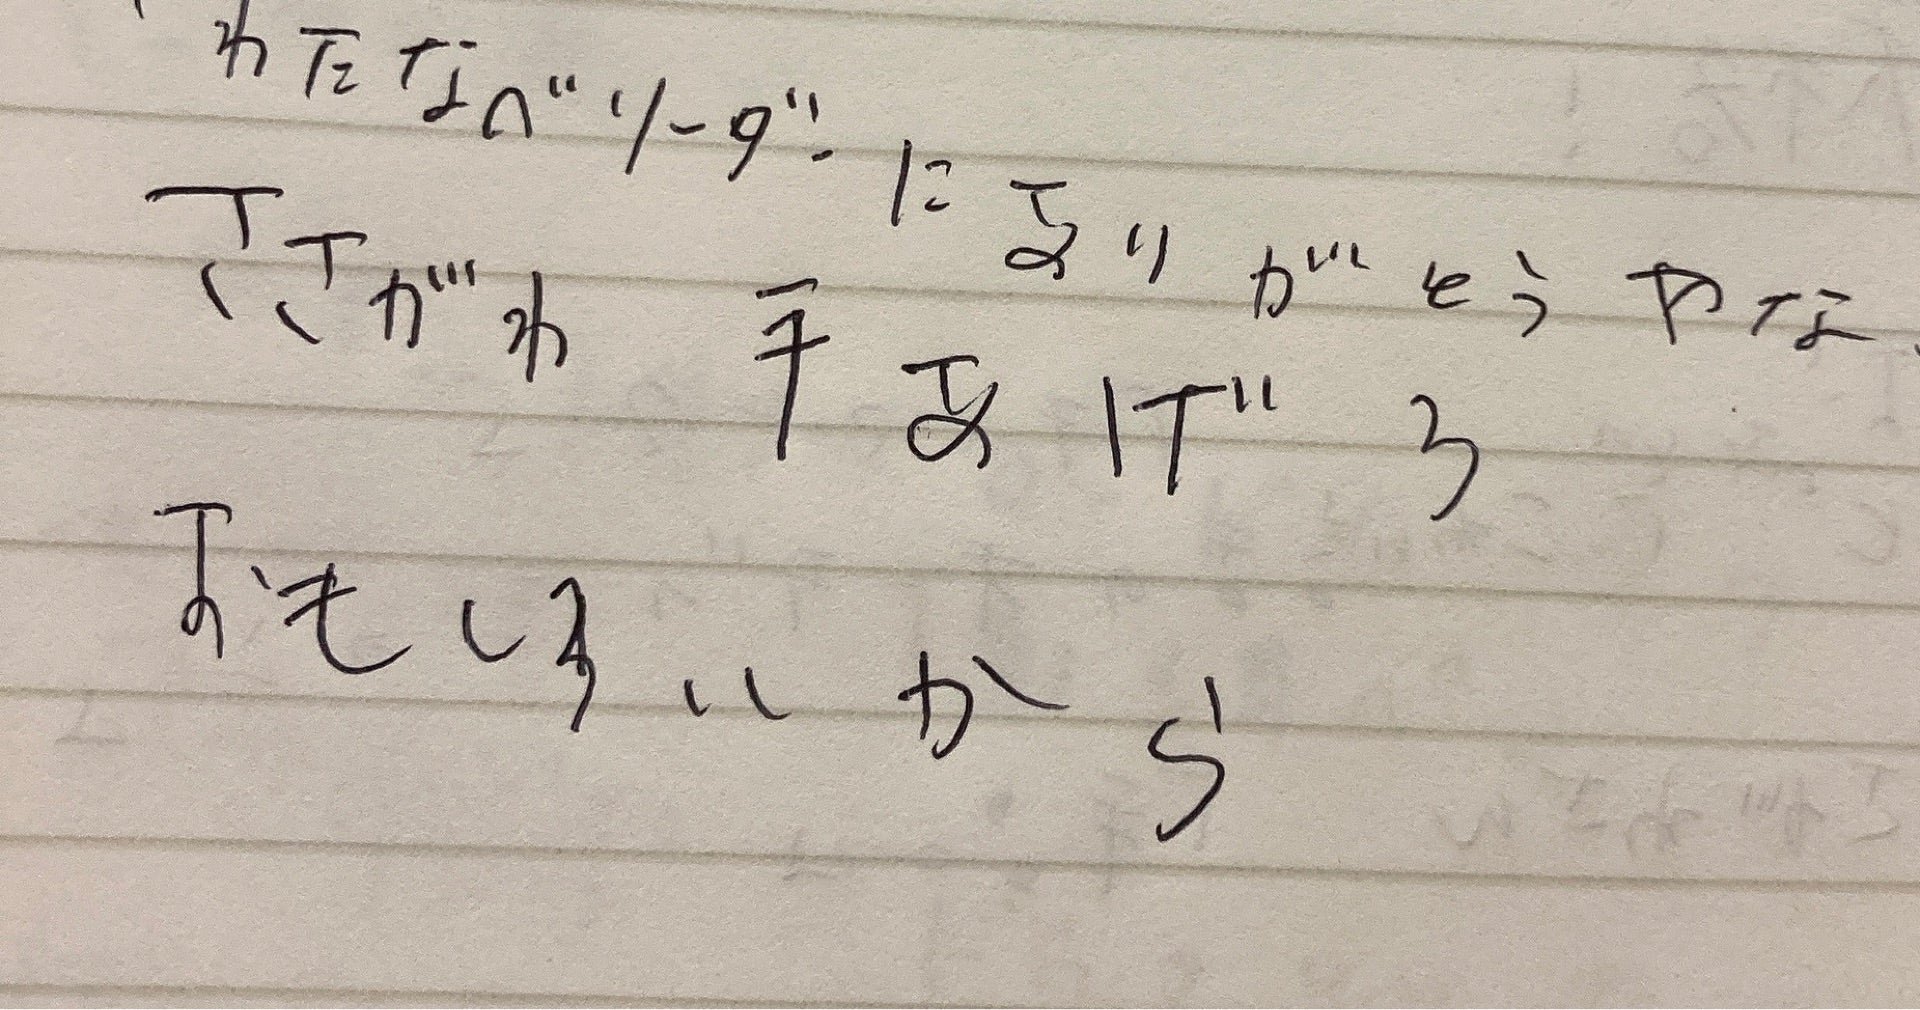 わたなべリーダーにありがとうやな
ささがわ 手あげろ
おもしろいから